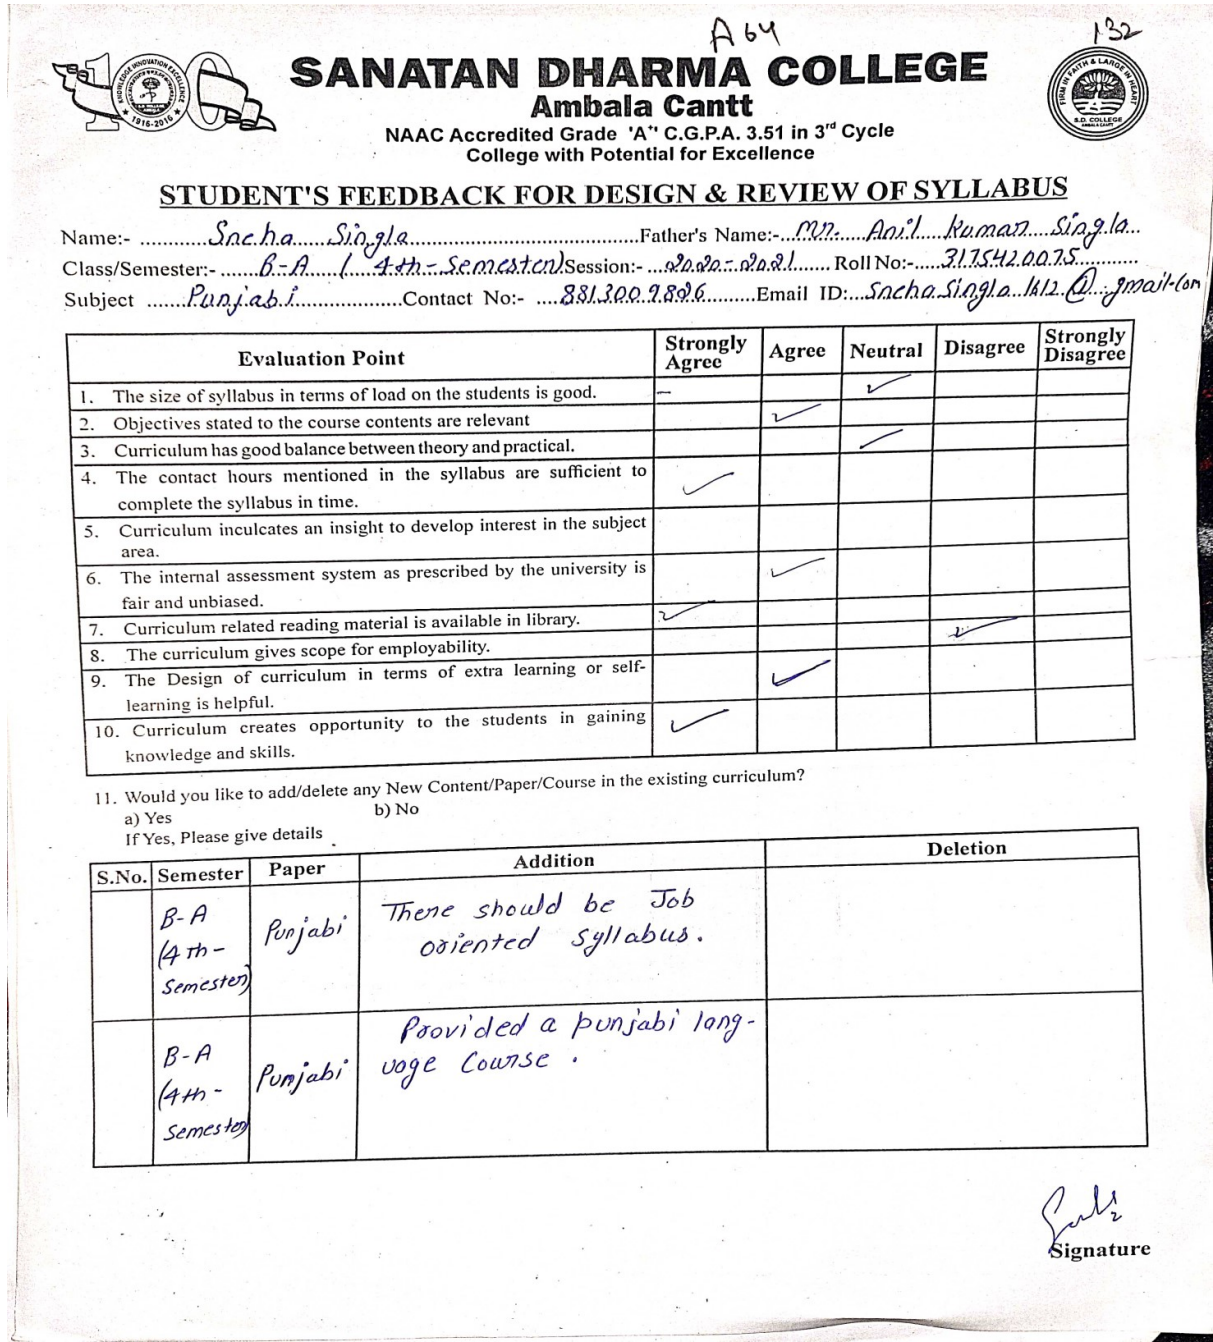 A 64
132
SANATAN DHARMA COLLEGE
Ambala Cantt
NAAC Accredited Grade 'A+' C.G.P.A. 3.51 in 3rd Cycle
College with Potential for Excellence
KNOWLEDGE INNOVATION EXCELLENCE
1916-2016
FIRM IN FAITH & LARGE IN HEART
S.D. COLLEGE
AMBALA CANTT
STUDENT'S FEEDBACK FOR DESIGN & REVIEW OF SYLLABUS
Name:- Sneha Singla Father's Name:- Mr. Anil Kumar Singla
Class/Semester:- B-A (4th-Semester) Session:- 2020-2021 Roll No:- 3175420075
Subject Punjabi Contact No:- 8813009826 Email ID:- Sneha Singla 1612@gmail.com
Evaluation Point Strongly Agree Agree Neutral Disagree Strongly Disagree
1. The size of syllabus in terms of load on the students is good. – ✓
2. Objectives stated to the course contents are relevant ✓
3. Curriculum has good balance between theory and practical. ✓
4. The contact hours mentioned in the syllabus are sufficient to
complete the syllabus in time. ✓
5. Curriculum inculcates an insight to develop interest in the subject
area.
6. The internal assessment system as prescribed by the university is
fair and unbiased. ✓
7. Curriculum related reading material is available in library. ✓
8. The curriculum gives scope for employability. ✓
9. The Design of curriculum in terms of extra learning or self-
learning is helpful. ✓
10. Curriculum creates opportunity to the students in gaining
knowledge and skills. ✓
11. Would you like to add/delete any New Content/Paper/Course in the existing curriculum?
a) Yes b) No
If Yes, Please give details
S.No. Semester Paper Addition Deletion
B-A (4th-Semester) Punjabi There should be Job
oriented syllabus.
B-A (4th-Semester) Punjabi Provided a punjabi lang-
uage Course.
Signature